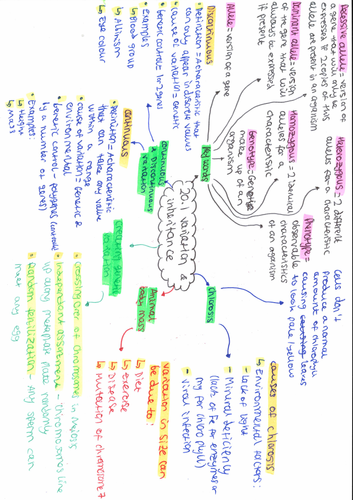 20.1 variation & inheritance
Key words
Allele = version of a gene
Dominant allele = version
of the gene that will
always be expressed
if present
Recessive allele = version of
a gene that will only be
expressed if 2 copies of this
allele are present in an organism
Homozygous = 2 identical
alleles for a
characteristic
Heterozygous = 2 different
alleles for a characteristic
Genotype = Genetic
make up of an
organism
Phenotype =
observable
characteristics
of an organism
Chlorosis
Cells don't
produce a normal
amount of chlorophyll
causing leaves
to look pale/yellow
causes of chlorosis
↳ Environmental factors:
- lack of light
- Mineral deficiency
(lack of Fe for enzymes or
mg for chlorophyll)
- Viral infection
Animal
body mass
variation in size can
be due to:
↳ Diet
↳ Exercise
↳ Disease
↳ Mutation of chromosome 7
creating genetic
variation
• crossing over of chromosomes in meiosis
• Independent assortment - chromosomes line
up along metaphase plate randomly
• Random fertilization - Any sperm can
meet any egg
continuous
& discontinuous
variation
Discontinuous
• Definition = A characteristic that
can only appear in discrete values
• cause of variation = genetic
• Genetic control = 1 or 2 genes
• examples
↳ Blood group
↳ Albinism
↳ Eye colour
continuous
• Definition = A characteristic
that can take any value
within a range
• cause of variation = Genetic &
environmental
• Genetic control = Polygenes (control
by a number of genes)
• Examples:
↳ Height
↳ mass